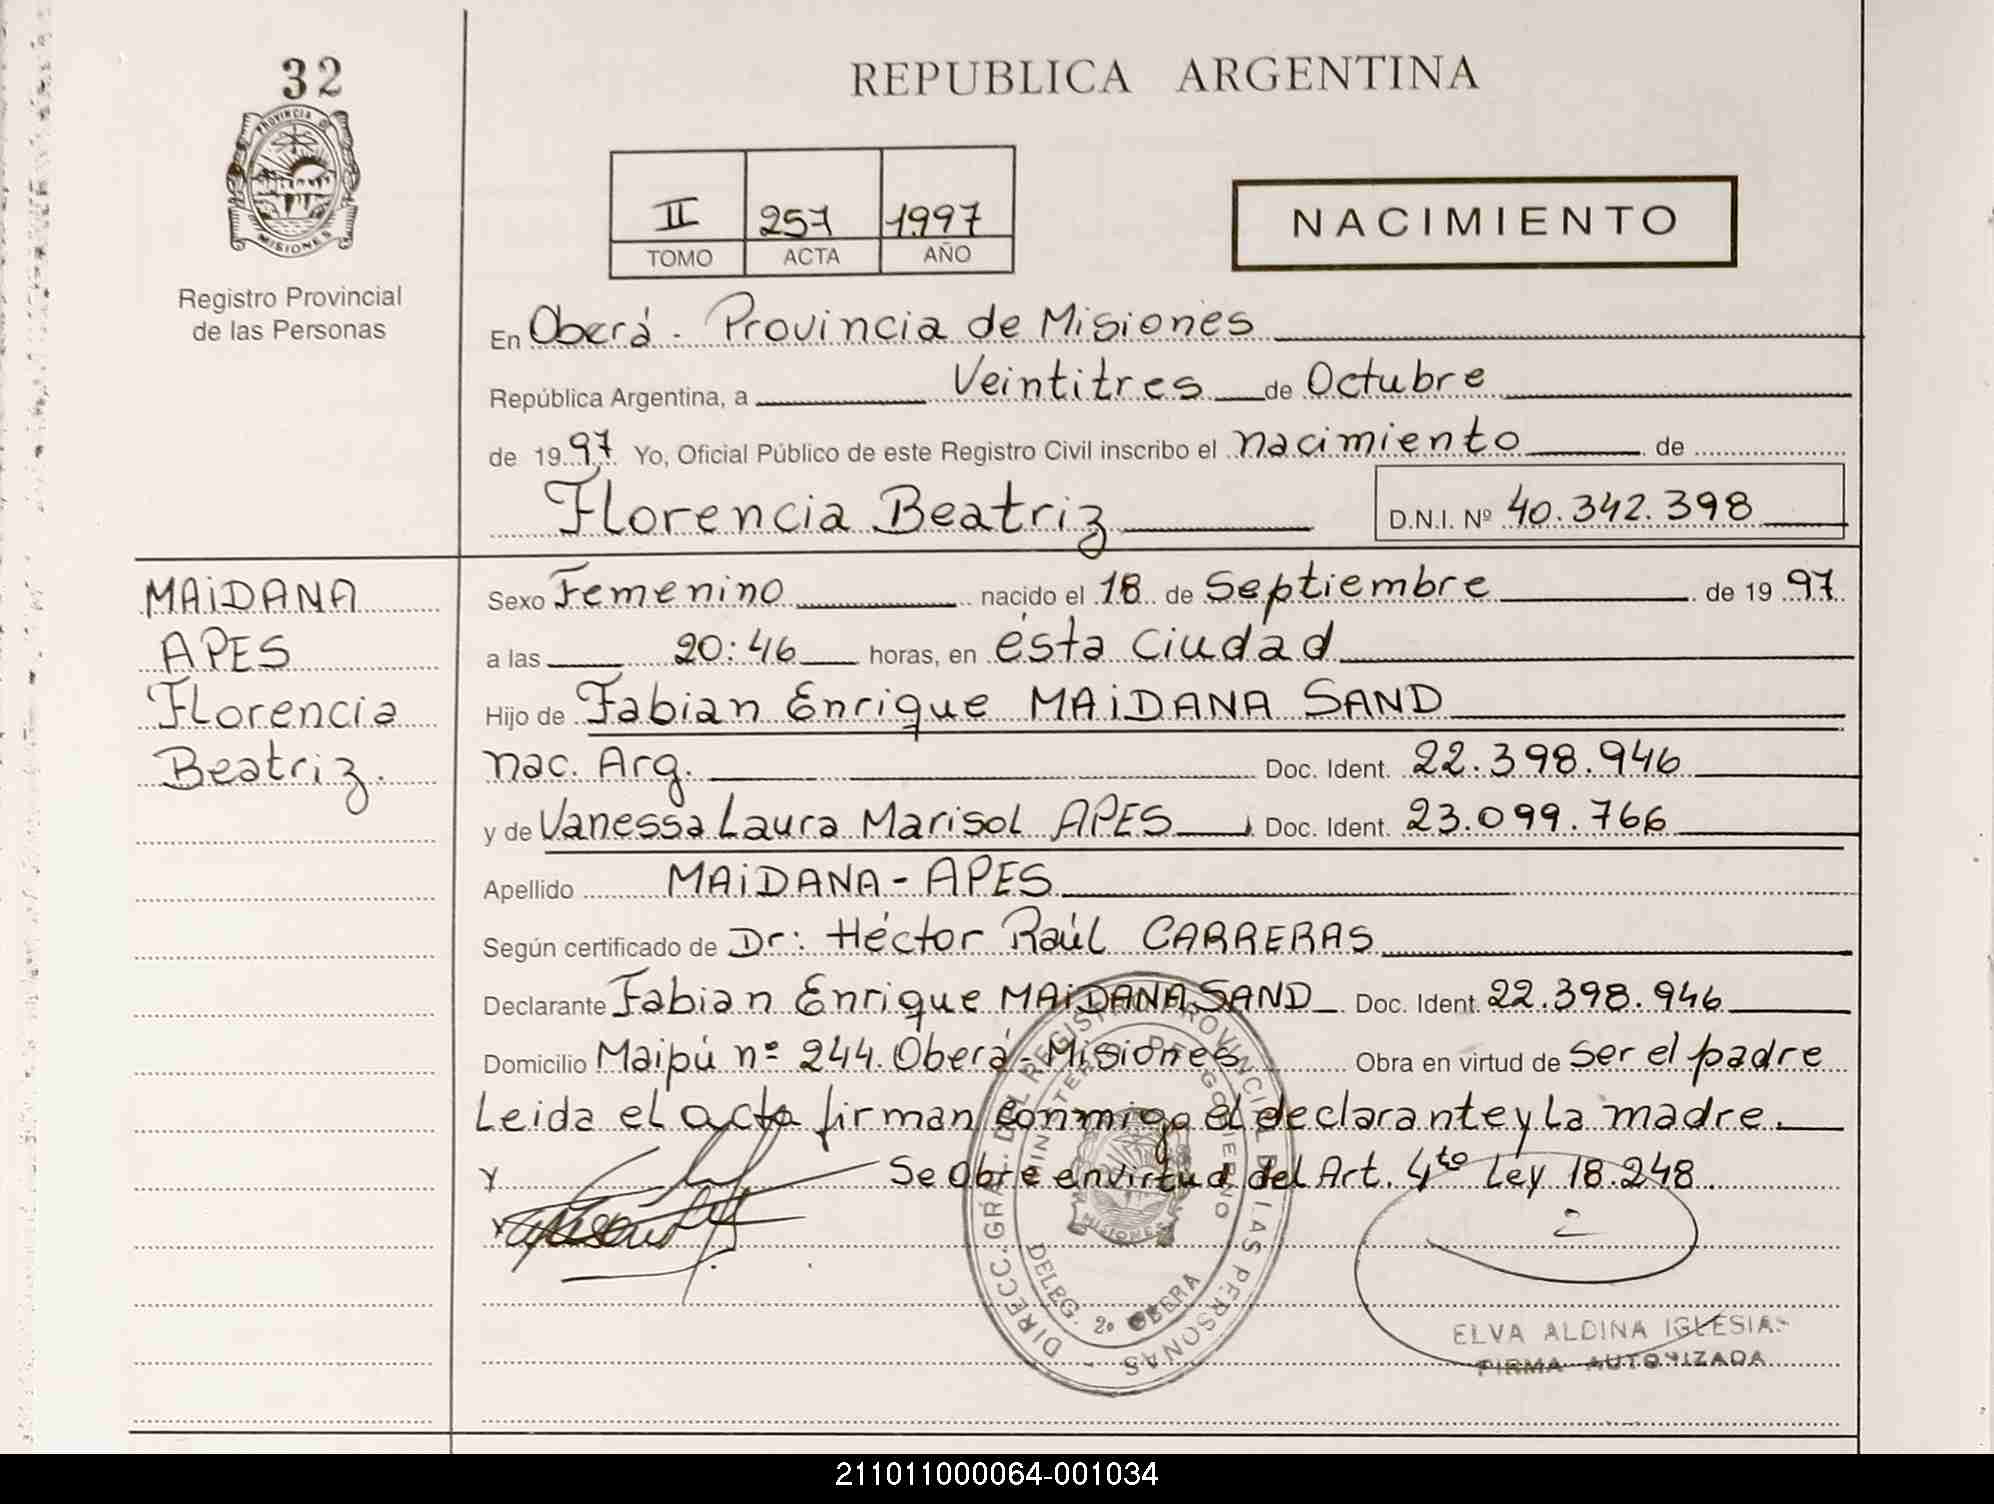 32
PROVINCIA D
MISIONES
Registro Provincial
de las Personas
REPUBLICA ARGENTINA
II 257 1997
TOMO ACTA AÑO
NACIMIENTO
En Oberá - Provincia de Misiones
República Argentina, a Veintitres de Octubre
de 1997 Yo, Oficial Público de este Registro Civil inscribo el nacimiento de
Florencia Beatriz D.N.I. Nº 40.342.398
MAiDANA
APES
Florencia
Beatriz.
Sexo Femenino nacido el 18 de Septiembre de 1997
a las 20:46 horas, en ésta Ciudad
Hijo de Fabian Enrique MAiDANA SAND
nac. Arg. Doc. Ident. 22.398.946
y de Vanessa Laura Marisol APES Doc. Ident. 23.099.766
Apellido MAiDANA - APES
Según certificado de Dr: Héctor Raúl CARRERAS
Declarante Fabian Enrique MAiDANA SAND Doc. Ident. 22.398.946
Domicilio Maipú nº 244. Oberá - Misiones Obra en virtud de ser el padre
Leida el acta firman conmigo el declarante y La madre.
y Se Obre en virtud del Art. 4to Ley 18.248.
DIRECC. GRAL. DEL REGISTRO PROVINCIAL DE LAS PERSONAS
MINISTERIO DE GOBIERNO
MISIONES
DELEG. 2º OBERA
ELVA ALDINA IGLESIAS
FIRMA AUTORIZADA
211011000064-001034